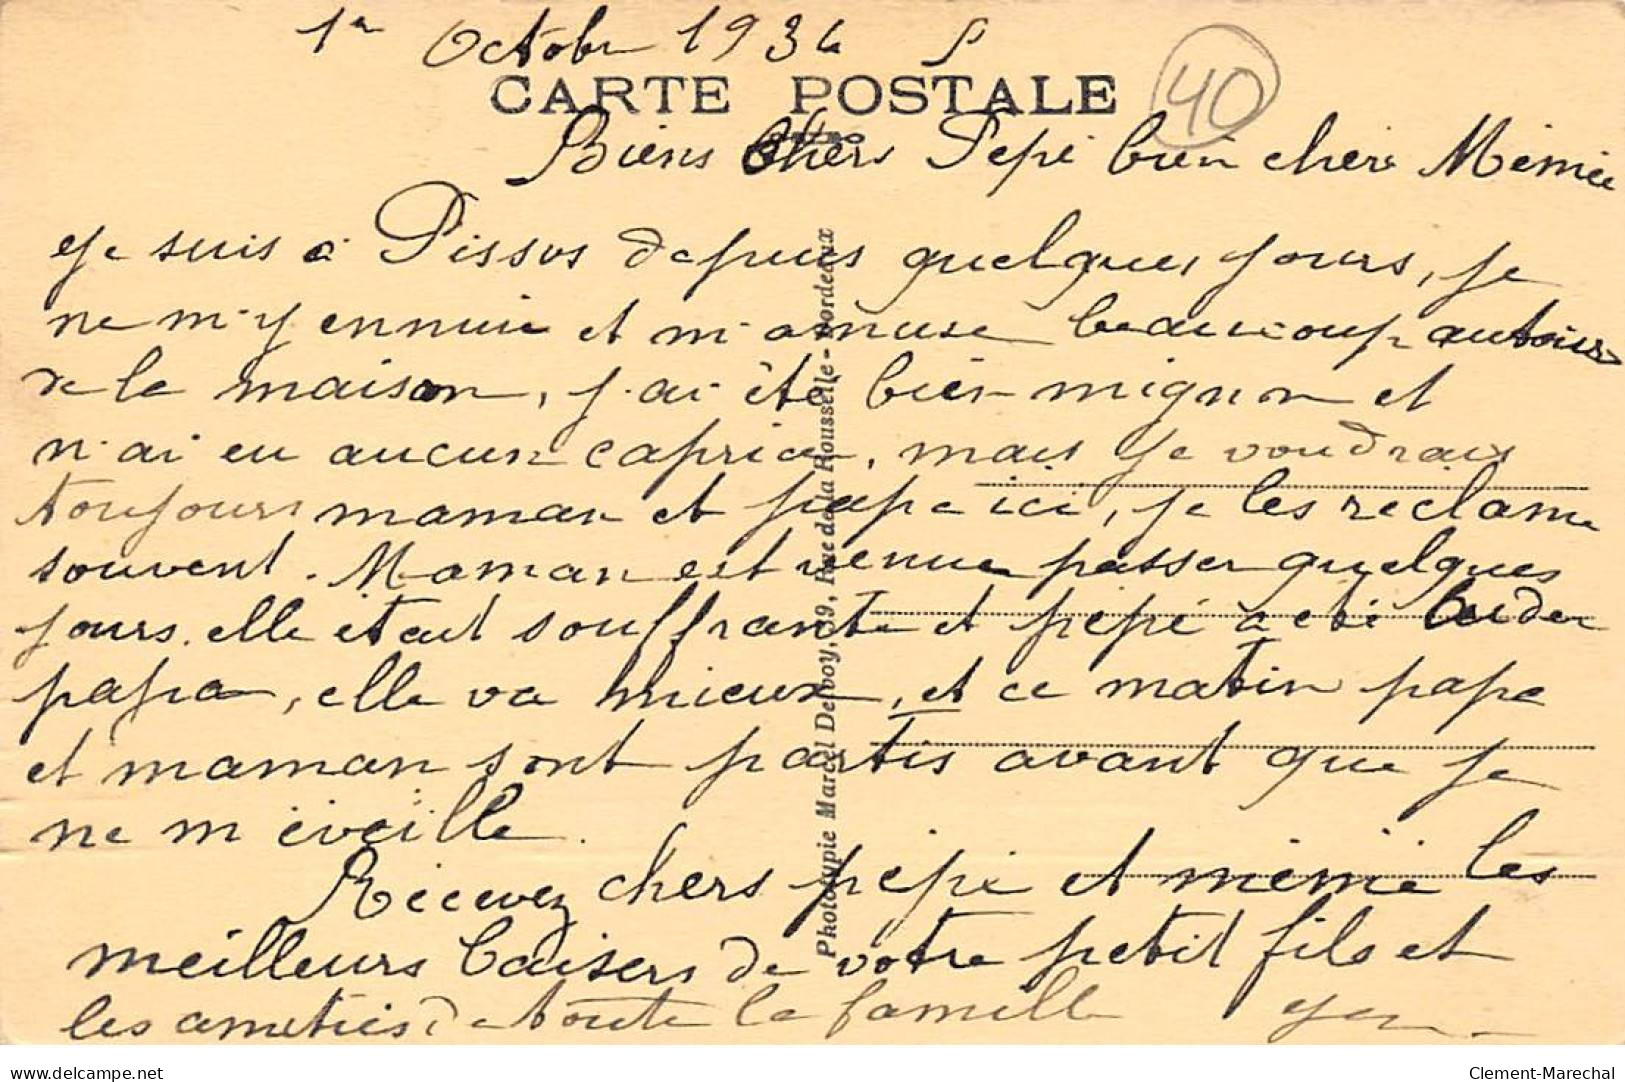 1er Octobre 1936
CARTE POSTALE
40
Biens Chers Pépé bien chère Mémée
je suis à Pissos depuis quelques jours, je
ne m'y ennuie et m'amuse beaucoup autour
de la maison, j'ai été bien mignon et
n'ai eu aucun caprice, mais je voudrais
toujours maman et papa ici, je les réclame
souvent. Maman est venue passer quelques
jours. elle était souffrante et pépé a été
papa, elle va mieux, et ce matin papa
et maman sont partis avant que je
ne m'éveille.
Recevez chers pépé et mémé les
meilleurs baisers de votre petit fils et
les amitiés de toute la famille
Phototypie Marcel Delboy, 39, Rue de la Rousselle - Bordeaux
www.delcampe.net
Clement-Marechal